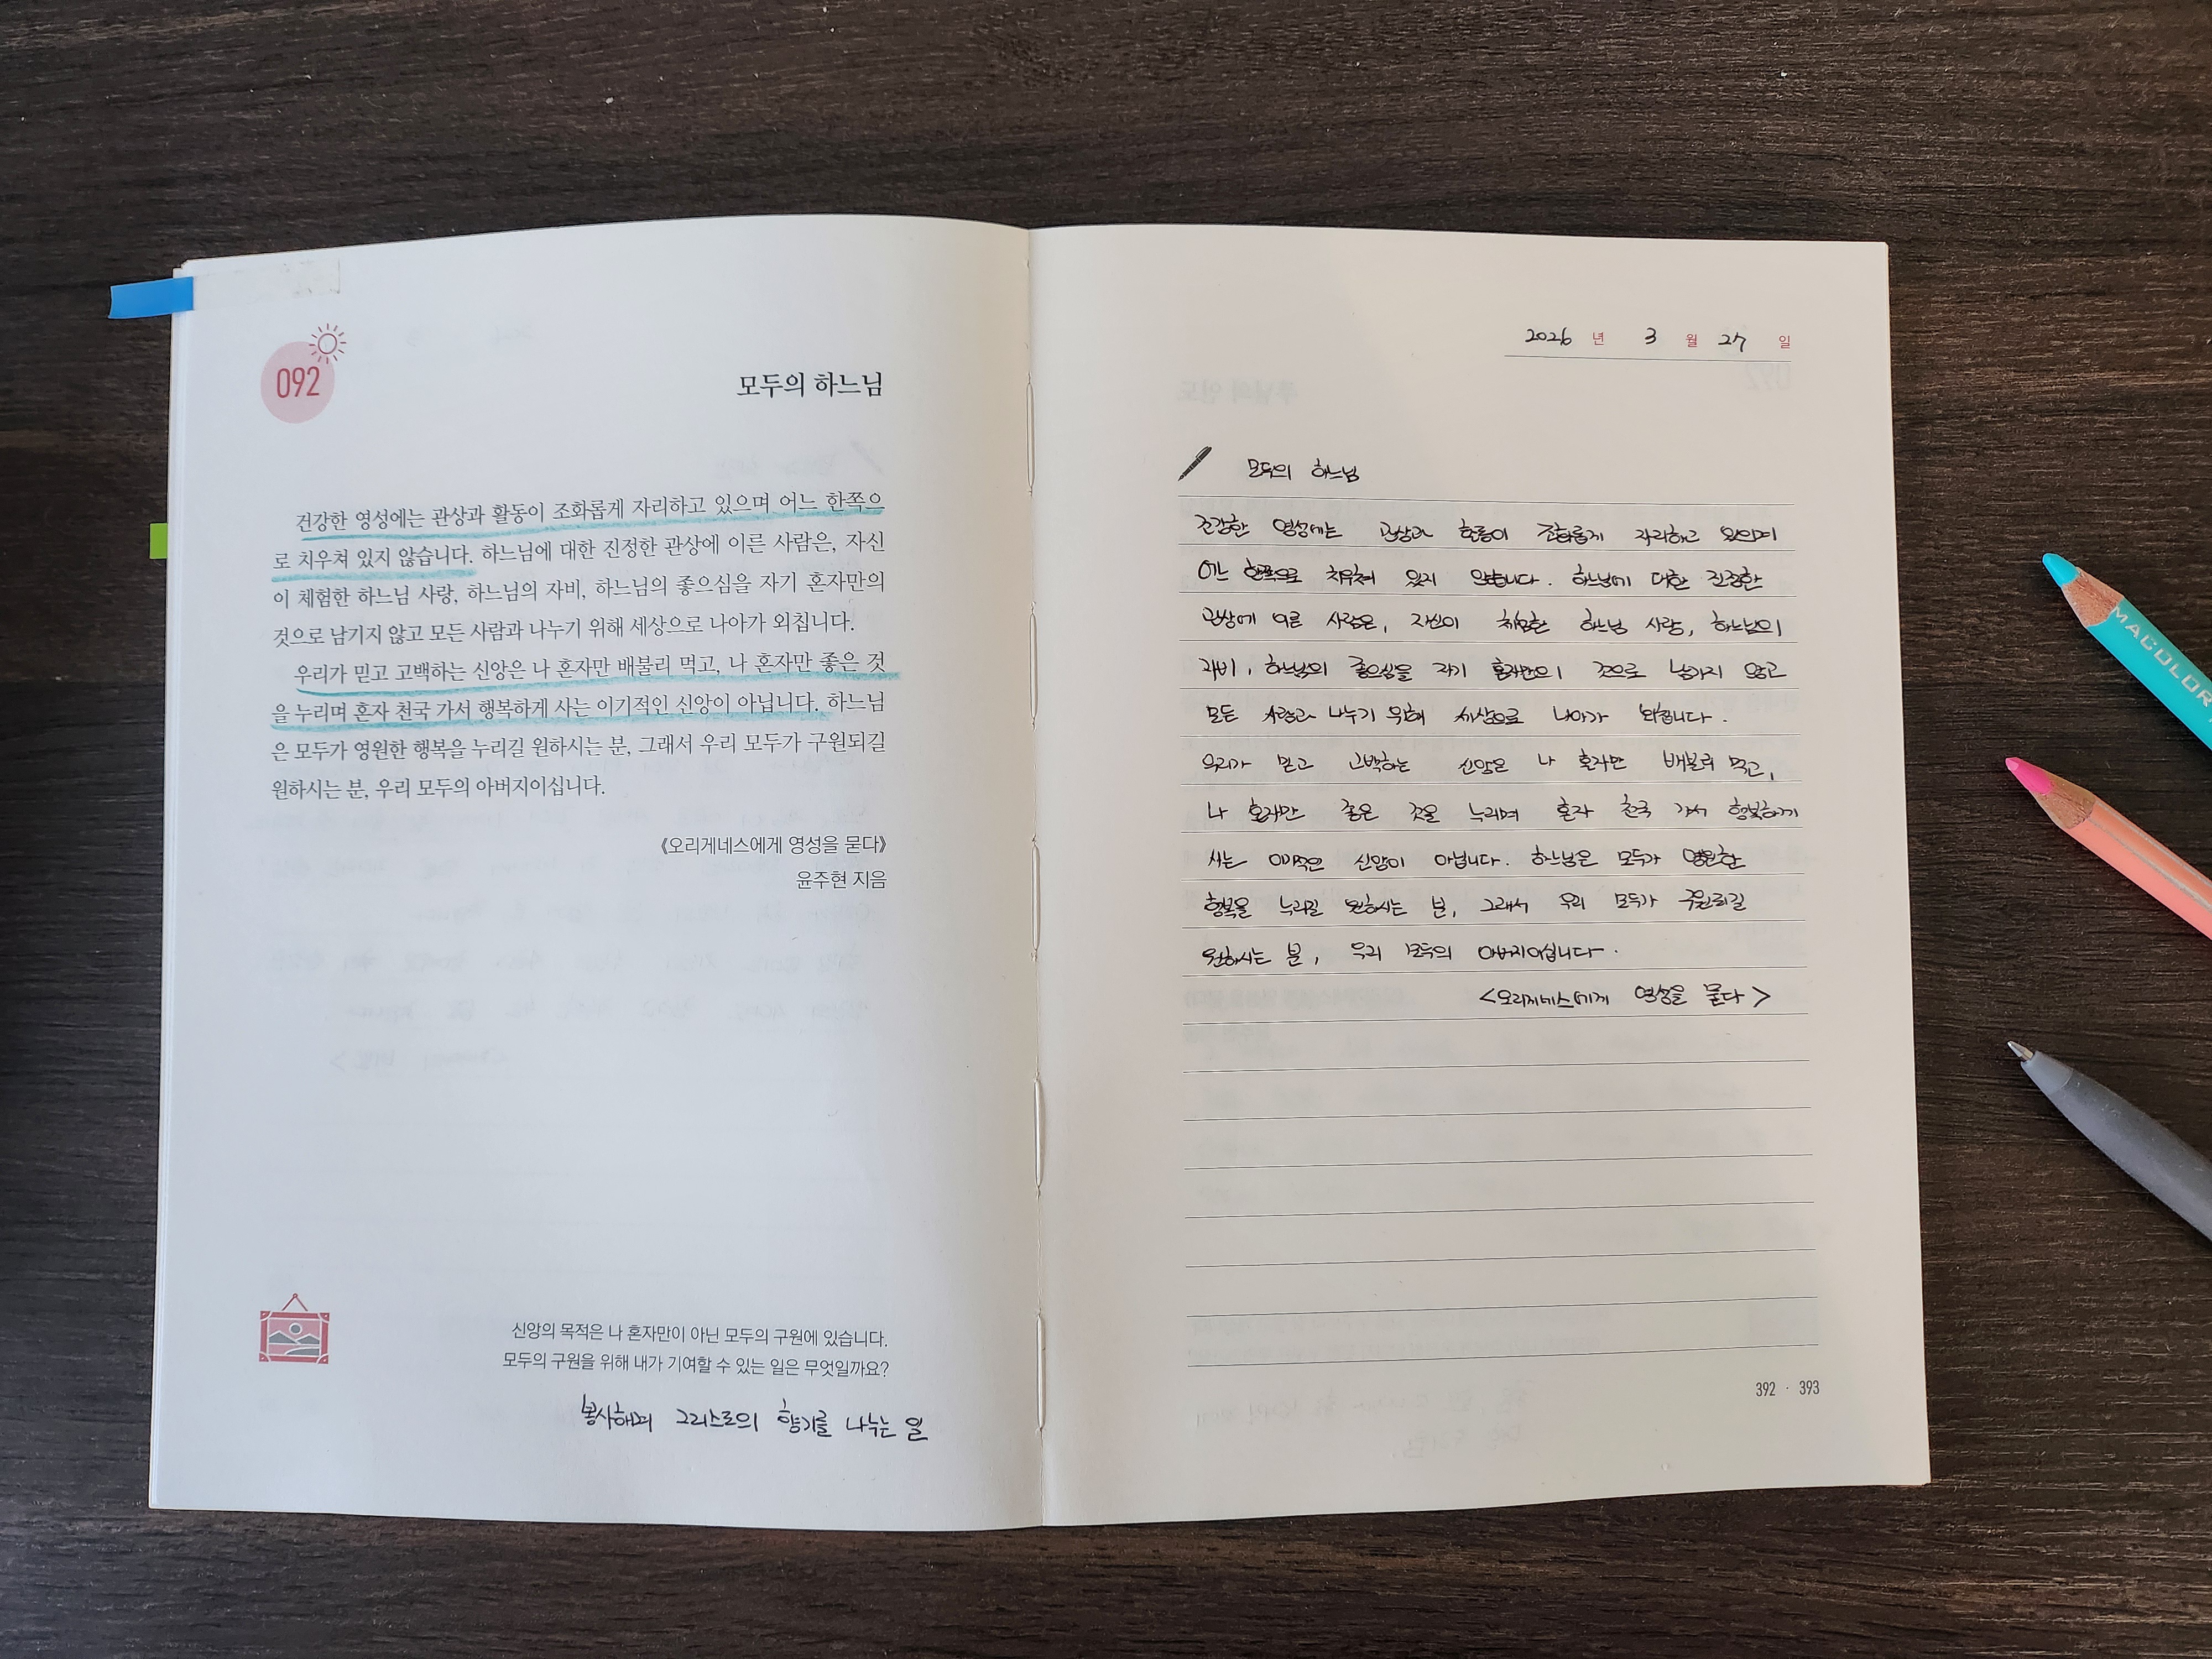 092
모두의 하느님
건강한 영성에는 관상과 활동이 조화롭게 자리하고 있으며 어느 한쪽으
로 치우쳐 있지 않습니다. 하느님에 대한 진정한 관상에 이른 사람은, 자신
이 체험한 하느님 사랑, 하느님의 자비, 하느님의 좋으심을 자기 혼자만의
것으로 남기지 않고 모든 사람과 나누기 위해 세상으로 나아가 외칩니다.
우리가 믿고 고백하는 신앙은 나 혼자만 배불리 먹고, 나 혼자만 좋은 것
을 누리며 혼자 천국 가서 행복하게 사는 이기적인 신앙이 아닙니다. 하느님
은 모두가 영원한 행복을 누리길 원하시는 분, 그래서 우리 모두가 구원되길
원하시는 분, 우리 모두의 아버지이십니다.
《오리게네스에게 영성을 묻다》
윤주현 지음
신앙의 목적은 나 혼자만이 아닌 모두의 구원에 있습니다.
모두의 구원을 위해 내가 기여할 수 있는 일은 무엇일까요?
봉사하며 그리스도의 향기를 나누는 일
2026 년 3 월 27 일
모두의 하느님
건강한 영성에는 관상과 활동이 조화롭게 자리하고 있으며
어느 한쪽으로 치우쳐 있지 않습니다. 하느님에 대한 진정한
관상에 이른 사람은, 자신이 체험한 하느님 사랑, 하느님의
자비, 하느님의 좋으심을 자기 혼자만의 것으로 남기지 않고
모든 사람과 나누기 위해 세상으로 나아가 외칩니다.
우리가 믿고 고백하는 신앙은 나 혼자만 배불리 먹고,
나 혼자만 좋은 것을 누리며 혼자 천국 가서 행복하게
사는 이기적인 신앙이 아닙니다. 하느님은 모두가 영원한
행복을 누리길 원하시는 분, 그래서 우리 모두가 구원되길
원하시는 분, 우리 모두의 아버지이십니다.
<오리게네스에게 영성을 묻다>
392 · 393
MACOLOR